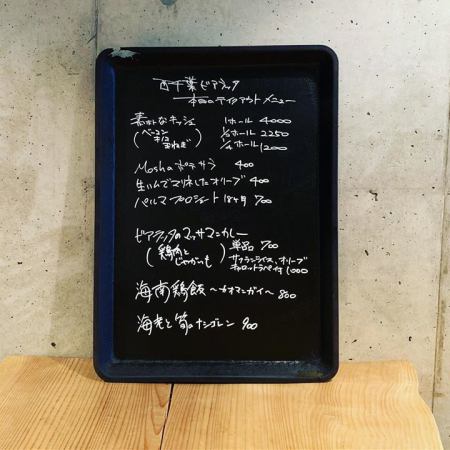 西千葉ビアラック
本日のテイクアウトメニュー
素朴なキッシュ 1ホール 4000
(ベーコン 1/2ホール 2250
キノコ 1/4ホール 1200
玉ねぎ)
Mosha ポテサラ 400
生ハムでマリネしたオリーブ 400
パルマプロシュート 18ヶ月 700
ビアラックのマッサマンカレー
(鶏肉と 単品 700
じゃがいも) サフランライス、オリーブ
キャロットラペ付 1000
海南鶏飯 〜カオマンガイ〜 800
海老と筍のナシゴレン 900